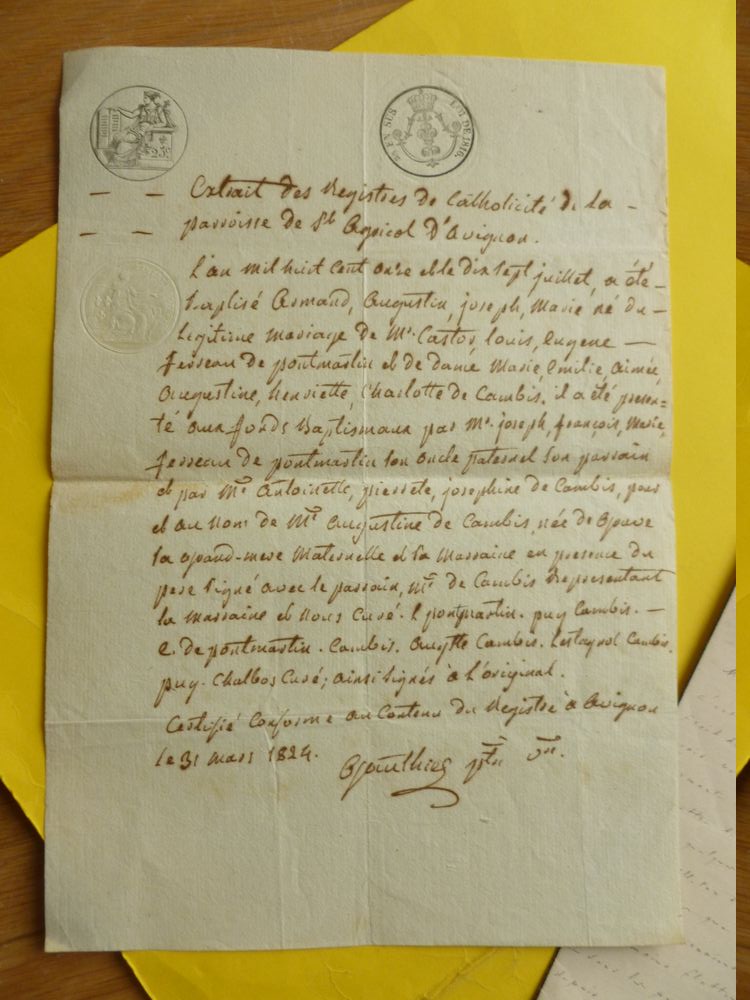 25c
EN SUS
LOI DE 1816.
Extrait des Registres de Catholicité de la
parroisse de St Agricol D'avignon.
L'an mil huit cent onze et le dix sept juillet, a été
baptisé Armand, augustin, joseph, Marie né du
legitime mariage de Mr. Castor, Louis, eugene
ferreau de pontmartin et de dame Marie, emilie, aimée,
augustine, henriette, Charlotte de Cambis, il a été presen=
té aux fonds Baptismaux par Mr. joseph, françois, Marie,
ferreau de pontmartin son oncle paternel son parrain
et par Me Antoinette, pierrete, josephine de Cambis, pour
et au nom de Me augustine de Cambis, née de
sa grand-mere Maternelle et sa Marraine en presence du
pere signé avec le parrain, Me de Cambis Representant
la marraine et nous Curé. pontmartin. puy Cambis.
e. de pontmartin. Cambis. Cambis. Cambis.
puy. Chalbos Curé; ainsi signés à L'original.
Certifié Conforme au Contenu du Registre à avignon
le 31 mars 1824.